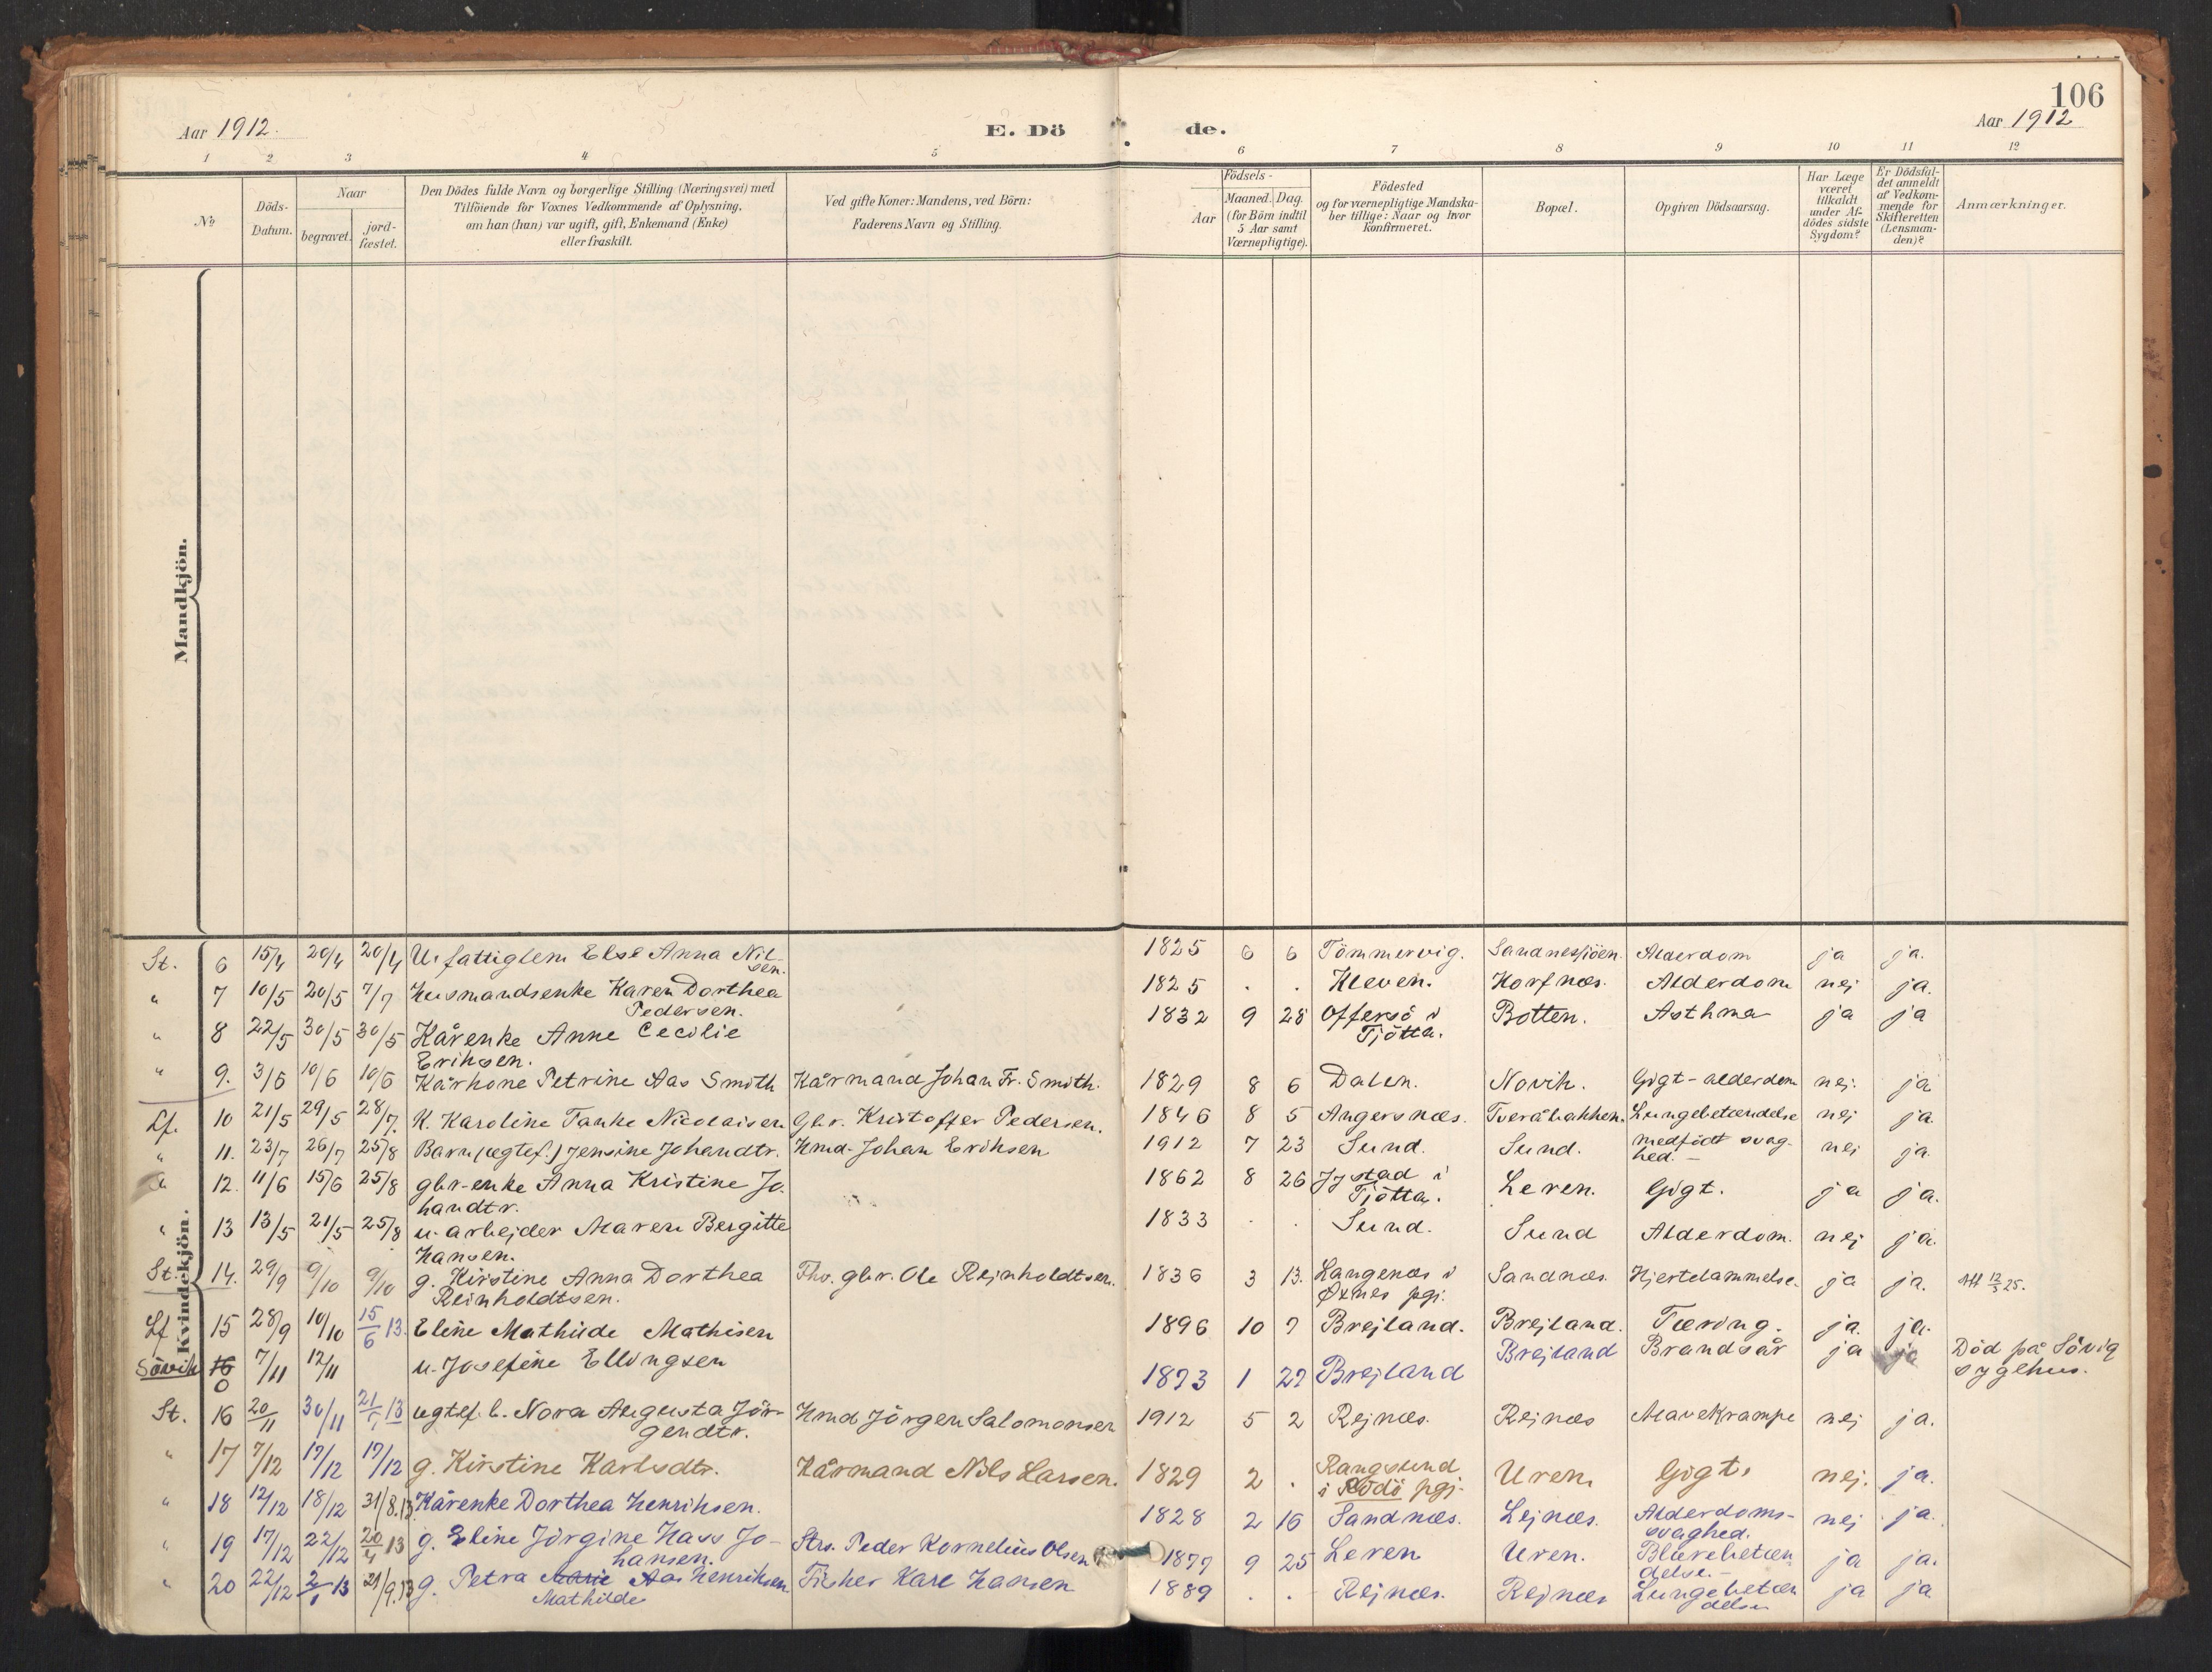 106
Aar 1912.
E. Dö
de.
Aar 1912
1 2 3 4 5 6 7 8 9 10 11 12
No
Döds-Datum.
Naar
begravet.
jord-fæstet.
Den Dödes fulde Navn og borgerlige Stilling (Næringsvei) med
Tilföiende for Voxnes Vedkommende af Oplysning,
om han (han) var ugift, gift, Enkemand (Enke)
eller fraskilt.
Ved gifte Koner: Mandens, ved Börn:
Faderens Navn og Stilling.
Födsels-
Aar
Maaned. Dag.
(for Börn indtil
5 Aar samt
Værnepligtige).
Födested
og for værnepligtige Mandska-
ber tillige: Naar og hvor
konfirmeret.
Bopæl.
Opgiven Dödsaarsag.
Har Læge
været
tilkaldt
under Af-
dödes sidste
Sygdom?
Er Dödsfal-
det anmeldt
af Vedkom-
mende for
Skifteretten
(Lensman-
den)?
Anmærkninger.
Mandkjön.
Kvindekjön.
St. 6 15/4 20/4 20/4 U. fattiglem Else Anna Nil-
sen. 1825 6 6 Tömmervig. Sandnessjöen. Alderdom ja ja.
" 7 10/5 20/5 7/7 Husmandsenke Karen Dorthea
Pedersen. 1825 . . Kleven. Horfnæs. Alderdom nej ja.
" 8 22/5 30/5 30/5 Kårenke Anne Cecilie
Eriksen. 1832 9 28 Offersö i
Tjötta. Botten. Asthma ja ja
" 9. 3/6 10/6 10/6 Kårkone Petrine Aas Smith Kårmand Johan Fr. Smith. 1829 8 6 Dalen. Novik. Gigt-alderdom nej. ja
Lf. 10 21/5 29/5 28/7. K. Karoline Tanke Nicolaisen Gbr. Kristoffer Pedersen. 1846 8 5 Angersnæs. Tveråbakken. Lungebetændelse nej ja.
" 11. 23/7 26/7 25/8 Barn (ægtef.) Jensine Johandtr. Hmd. Johan Eriksen 1912 7 23 Sund. Sund. medfödt svag-
hed. nej ja.
" 12. 11/6 15/6 25/8 gbr-enke Anna Kristine Jo-
handtr. 1862 8 26 Jystad i
Tjötta. Leren. Gigt. ja ja.
" 13 13/5 21/5 25/8 u. arbejder Maren Bergitte
Hansen. 1833 . . Sund. Sund Alderdom. nej ja.
St. 14. 29/9 9/10 9/10 g. Kirstine Anna Dorthea
Reinholdtsen. Fhv. gbr. Ole Rejnholdtsen. 1836 3 13. Langenæs i
Øxnes pgj. Sandnæs. Hjertelammelse. ja ja. Att 12/3 25.
Lf 15 28/9 10/10 15/6 13. Eline Mathilde Mathisen 1896 10 7 Brejland. Brejland. Tæring. ja. ja.
Søvik 16 0 7/11 12/11 u. Josefine Ellingsen 1873 1 27 Brejland Brejland Brandsår ja ja Död på Sövig
sygehus.
St. 16 20/11 30/11 21/1 13 ægtef. b. Nora Augusta Jör-
gendtr. Hmd Jörgen Salomonsen 1912 5 2 Rejnæs. Rejnæs Mavekrampe nej ja.
" 17 7/12 17/12 17/12 g. Kirstine Karlsdtr. Kårmand Nils Larsen. 1829 2 . Rangsund
i Rödö pgj. Uren. Gigt. nej. ja.
" 18 12/12 18/12 31/8.13 Kårenke Dorthea Henriksen. 1828 2 16 Sandnæs. Lejnæs. Alderdoms-
svaghed. nej ja.
" 19 17/12 22/12 20/4 13 g. Eline Jörgine Hass Jo-
hansen. Strs. Peder Kornelius Olsen 1877 9 25 Leren Uren. Blærebetæn
delse. ja ja.
" 20 22/12 2/1 13 21/9.13 g. Petra Marie Aas Henriksen
Mathilde Fisker Karl Hansen 1889 . . Rejnæs. Rejnæs Lungebetæn
delse ja ja